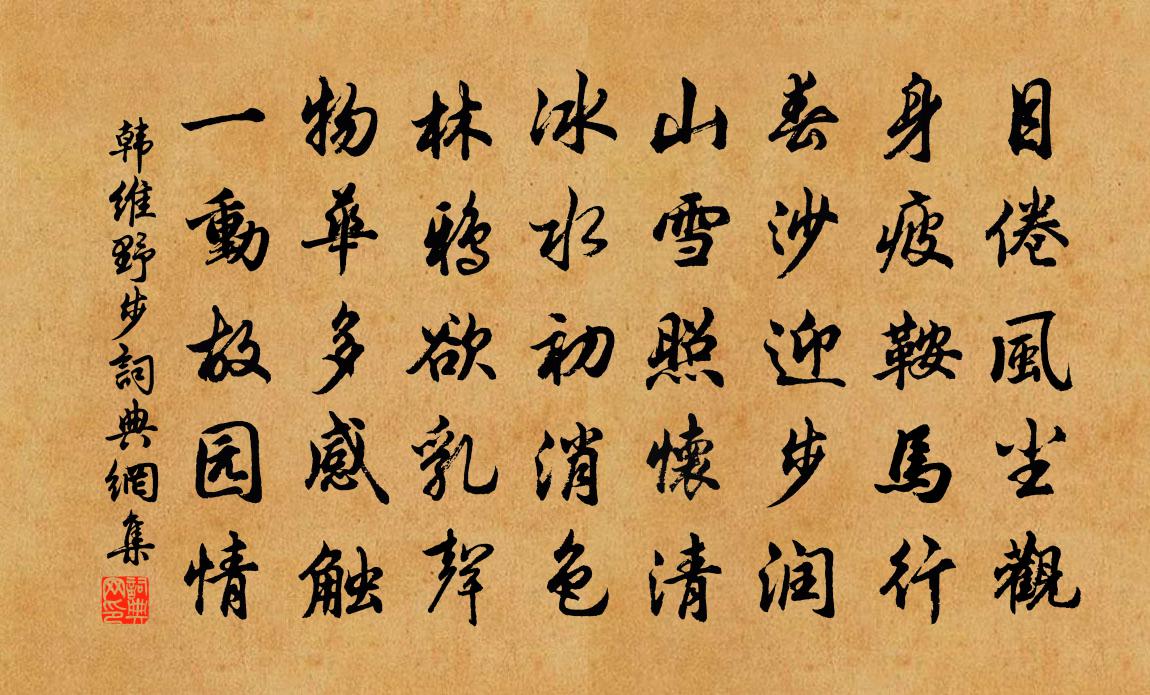 目倦風尘觀
身疲鞍馬行
春沙迎步润
山雪照懷清
冰水初消色
林鴉欲乳聲
物華多感触
一動故园情
韩維野步詞典網集
詞典网印